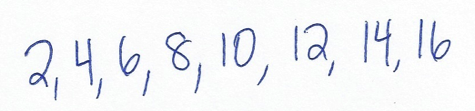 2, 4, 6, 8, 10, 12, 14, 16